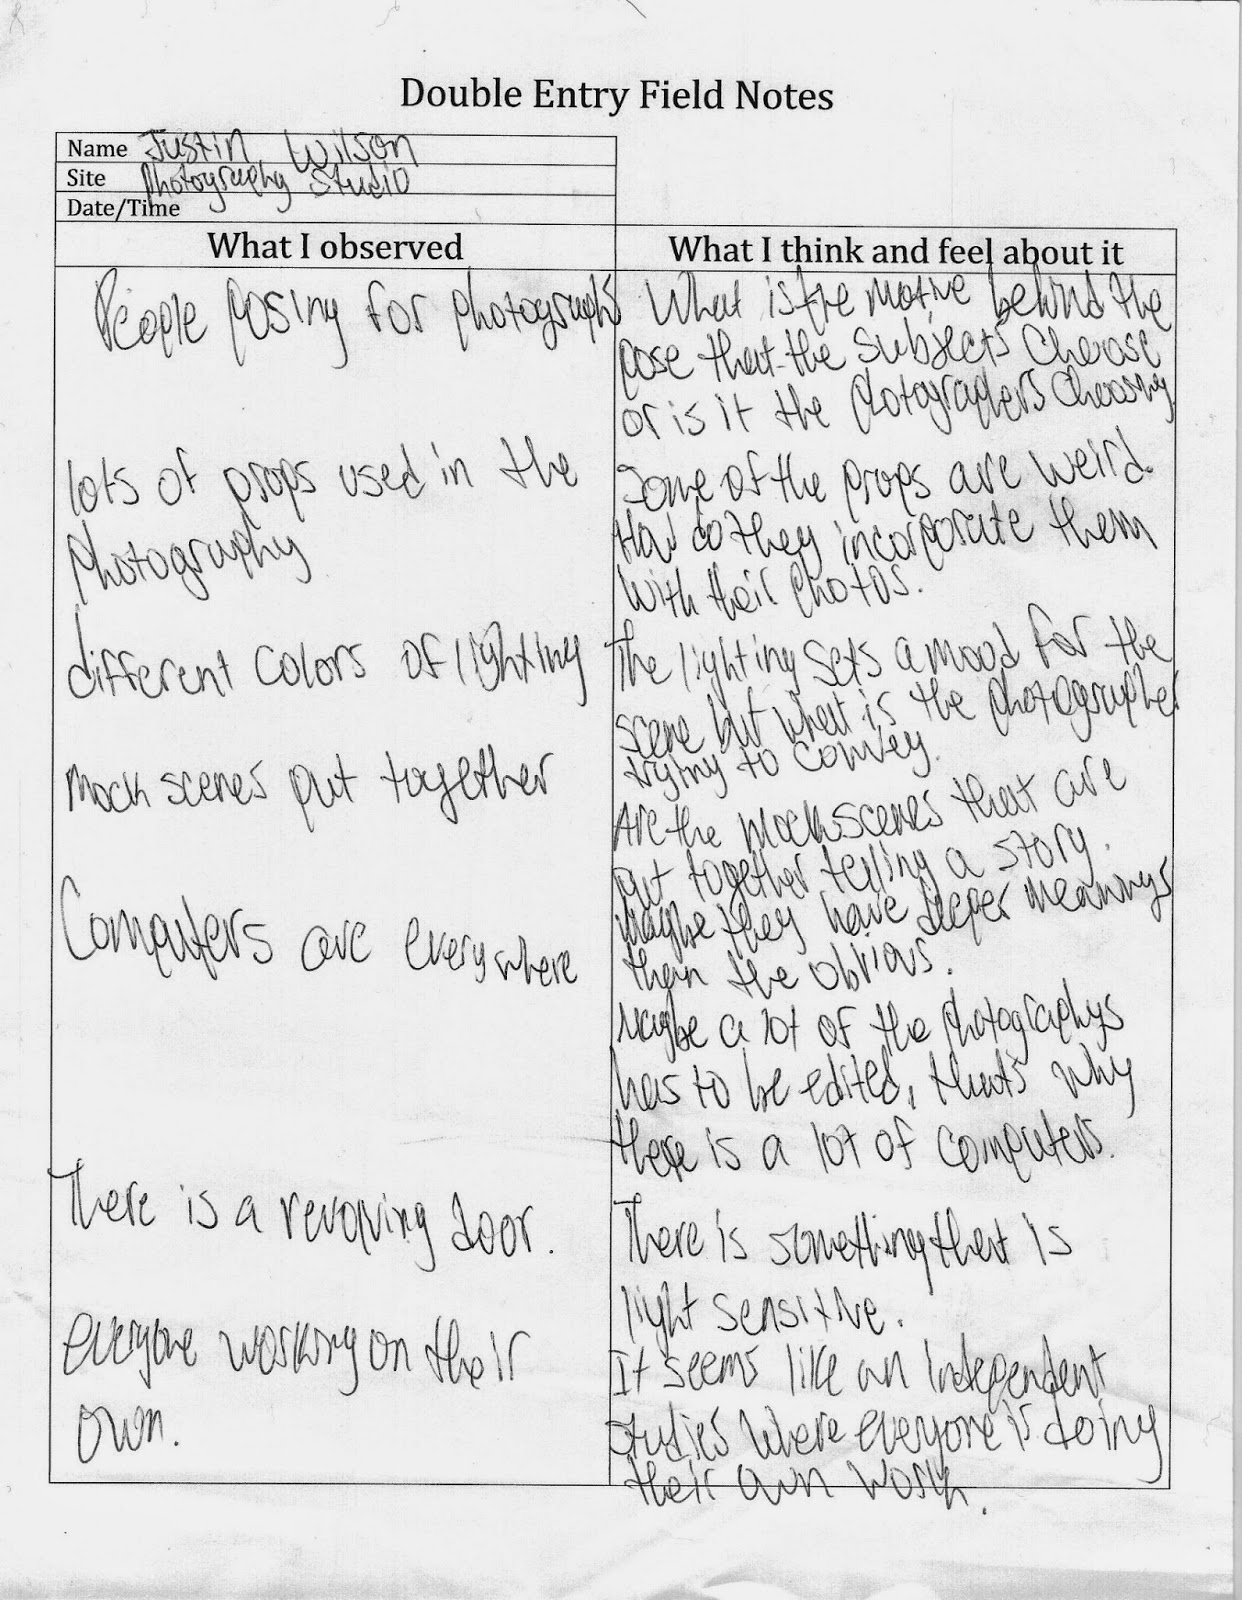 Double Entry Field Notes
Name Justin Wilson
Site Photography Studio
Date/Time
What I observed
People posing for photographs
lots of props used in the
photography
different colors of lighting
mock scenes put together
Computers are everywhere
There is a revolving door.
everyone working on their
own.
What I think and feel about it
What is the motive behind the
pose that the subjects choose
or is it the photographers choosing
Some of the props are weird.
How do they incorporate them
with their photos.
The lighting sets a mood for the
scene but what is the photographer
trying to convey.
Are the mock scenes that are
put together telling a story.
Maybe they have deeper meanings
then the obvious.
Maybe a lot of the photographys
has to be edited, that's why
there is a lot of computers.
There is something that is
light sensitive.
It seems like an independent
studies where everyone is doing
their own work.